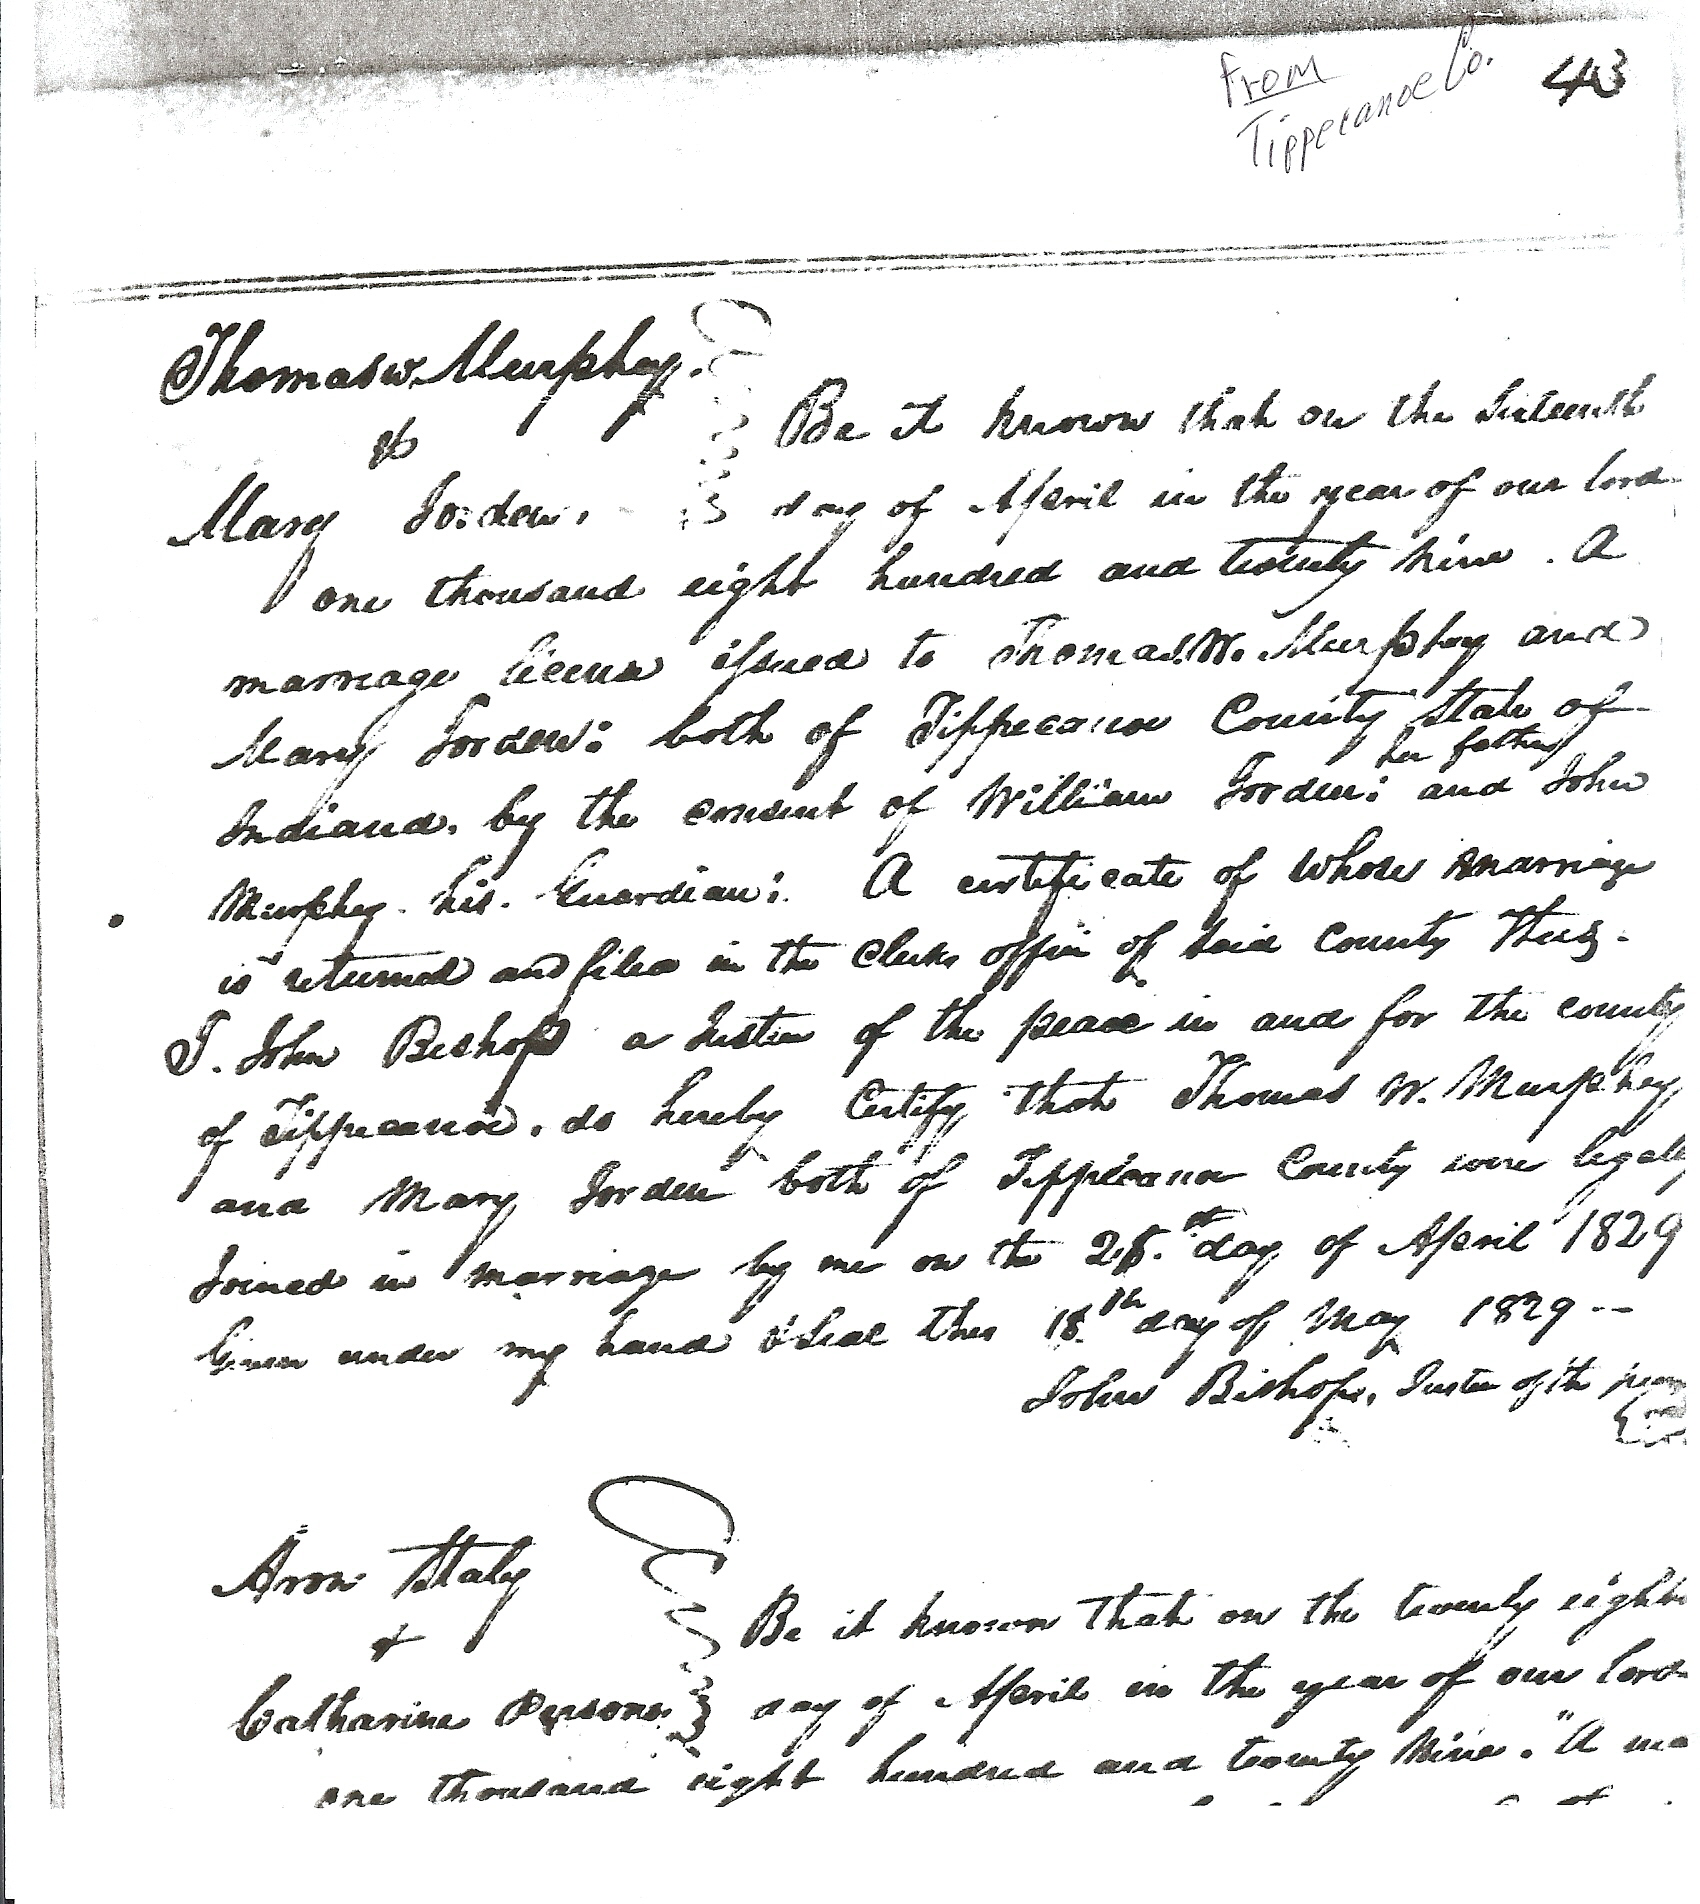 From
Tippecanoe Co.
43
Thomas W. Murphey.
&
Mary Jorden.
Be it known that on the Sixteenth
day of April in the year of our lord
one thousand eight hundred and twenty nine. A
marriage licens issued to Thomas W. Murphey and
Mary Jorden: both of Tippecanoe County State of
her father
Indiana. by the consent of William Jorden: and John
Murphey his Guardian: A certificate of whose marriage
is returned and filed in the Clerks office of said County Thus.
I. John Bishop a Justice of the peace in and for the county
of Tippecanoe. do hereby Certify that Thomas W. Murphey
and Mary Jorden both of Tippecanoe County were legaly
Joined in marriage by me on the day of April 1829
Given under my hand & Seal this 18th day of May 1829 --
John Bishop, Justice of the peace
Aron Staly
+
Catharine Persons
Be it known that on the twenty eighth
day of April in the year of our lord
one thousand eight hundred and twenty Nine. "A ma